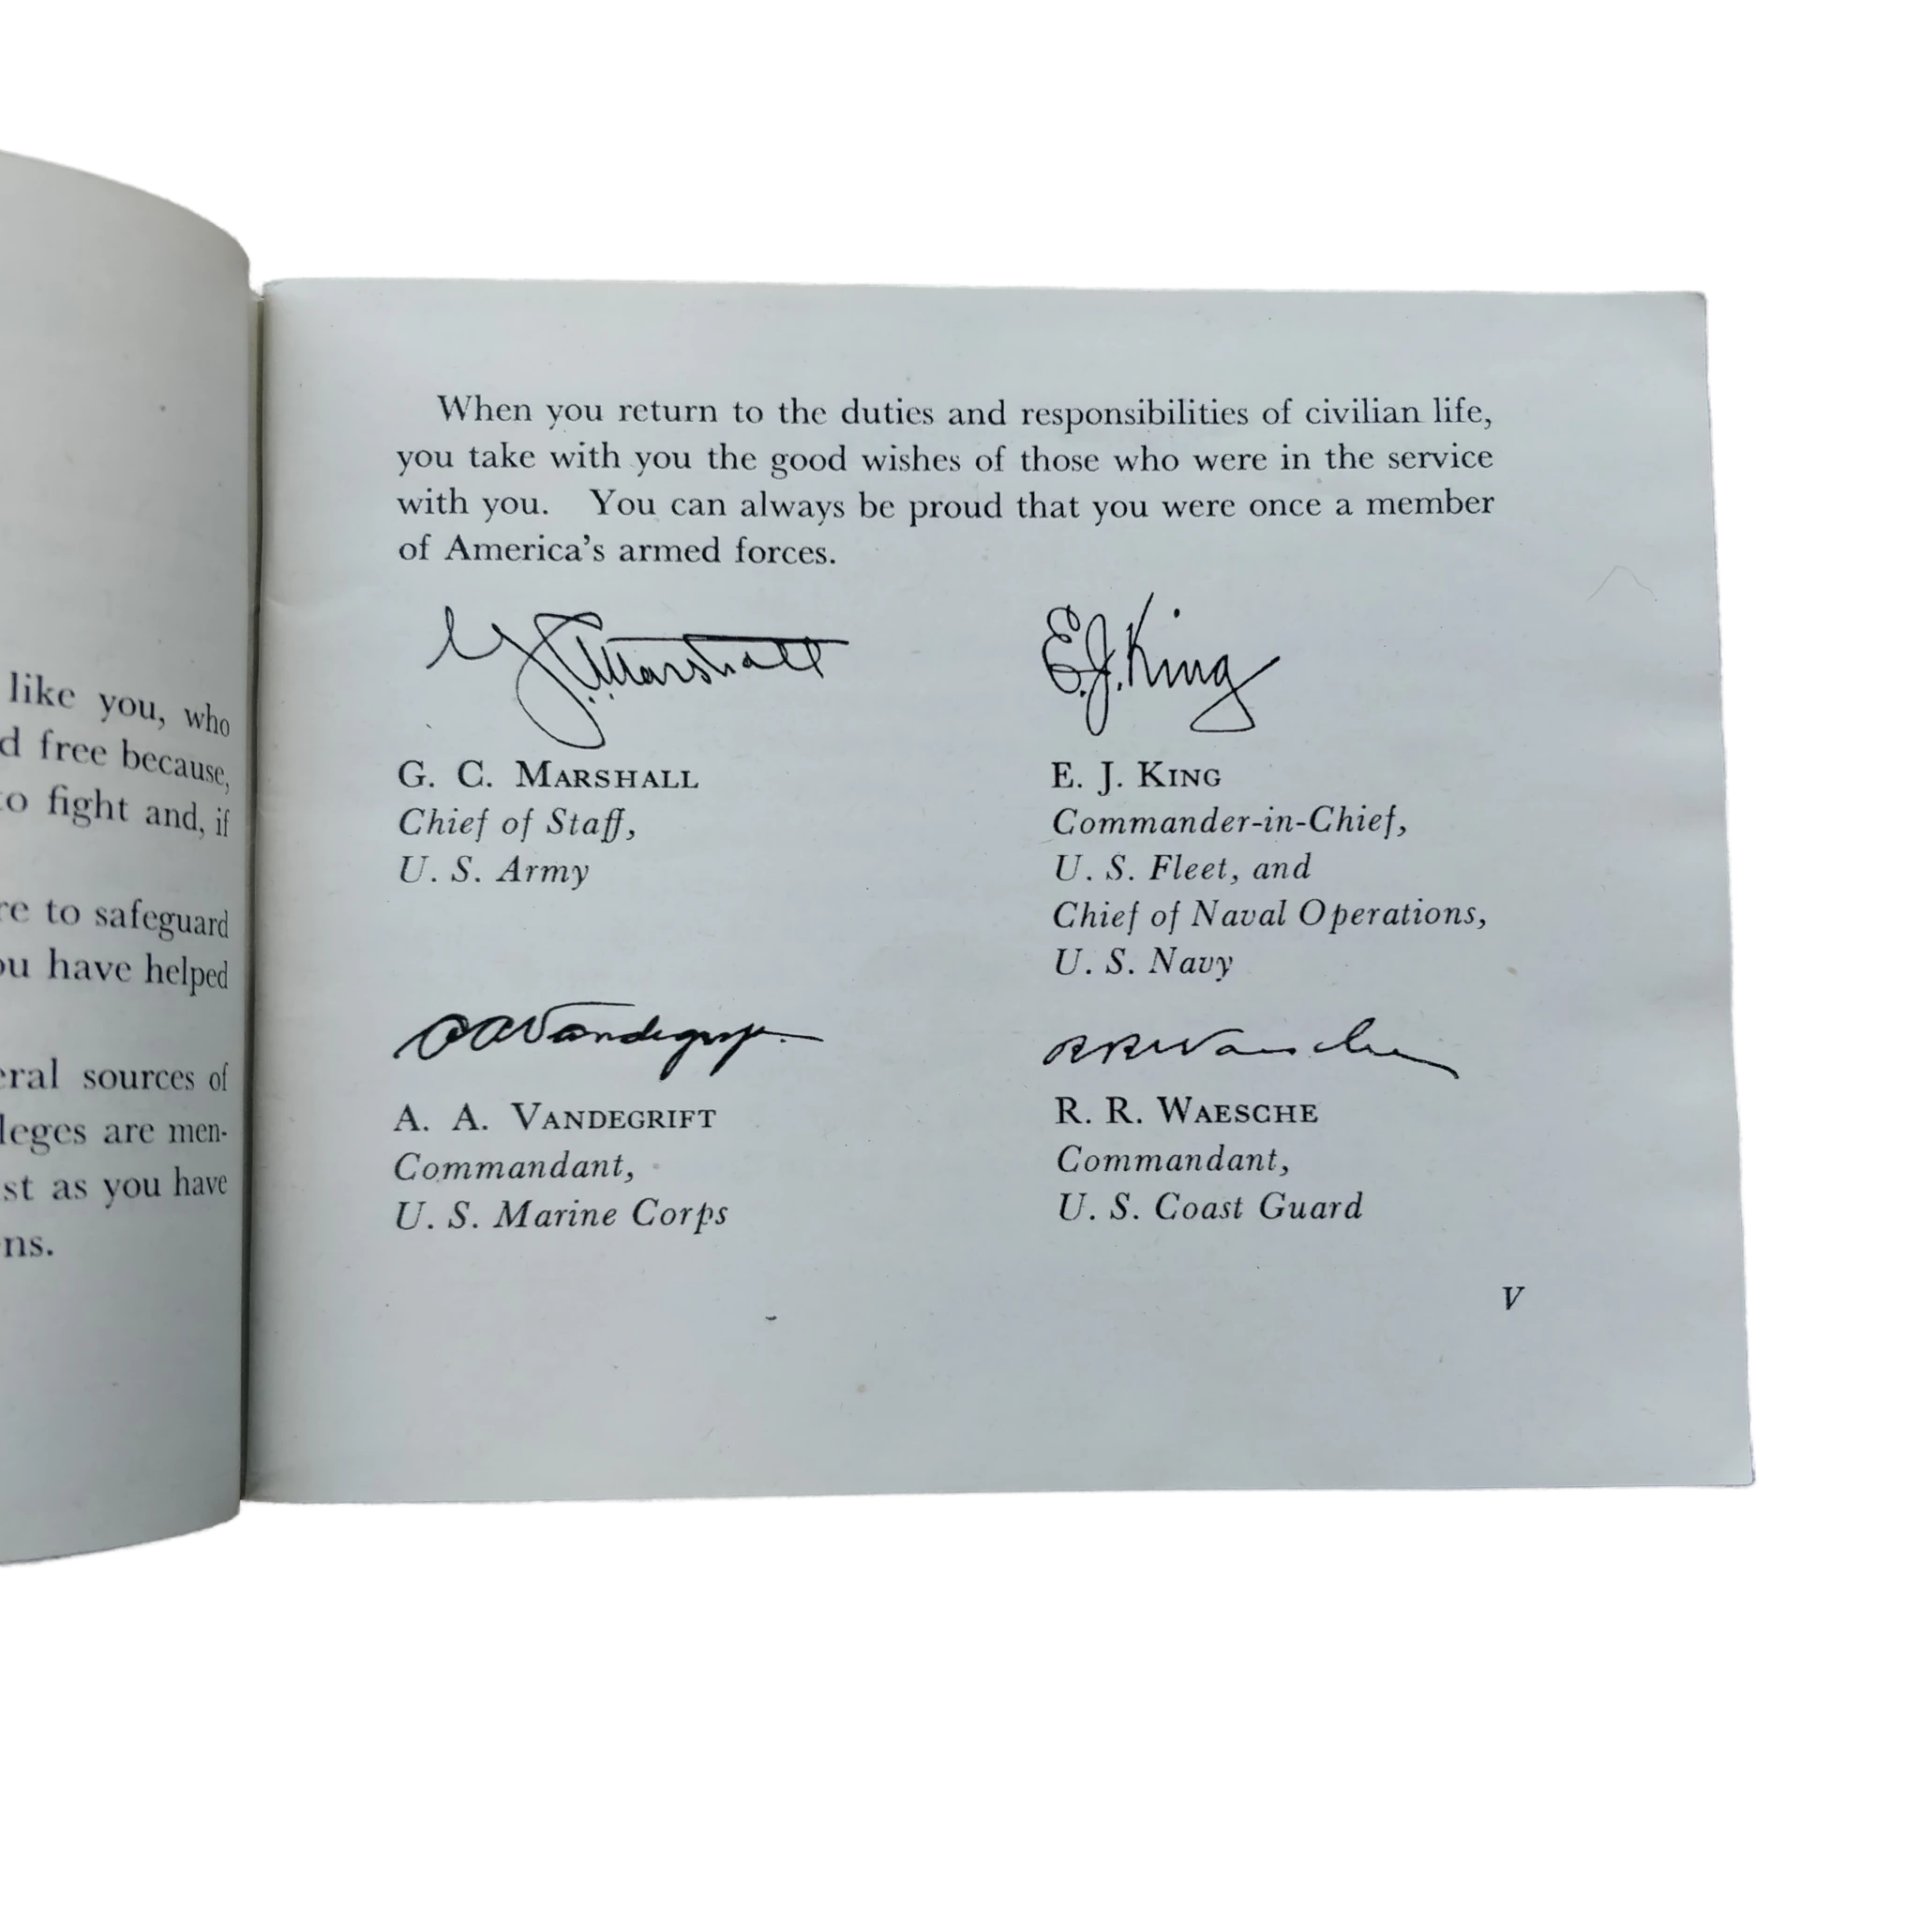 like you, who
d free because,
to fight and, if
re to safeguard
ou have helped
eral sources of
leges are men-
st as you have
ns.
When you return to the duties and responsibilities of civilian life,
you take with you the good wishes of those who were in the service
with you. You can always be proud that you were once a member
of America's armed forces.
G. C. Marshall
E. J. King
G. C. MARSHALL
Chief of Staff,
U. S. Army
E. J. KING
Commander-in-Chief,
U. S. Fleet, and
Chief of Naval Operations,
U. S. Navy
A A Vandegrift
R R Waesche
A. A. VANDEGRIFT
Commandant,
U. S. Marine Corps
R. R. WAESCHE
Commandant,
U. S. Coast Guard
V